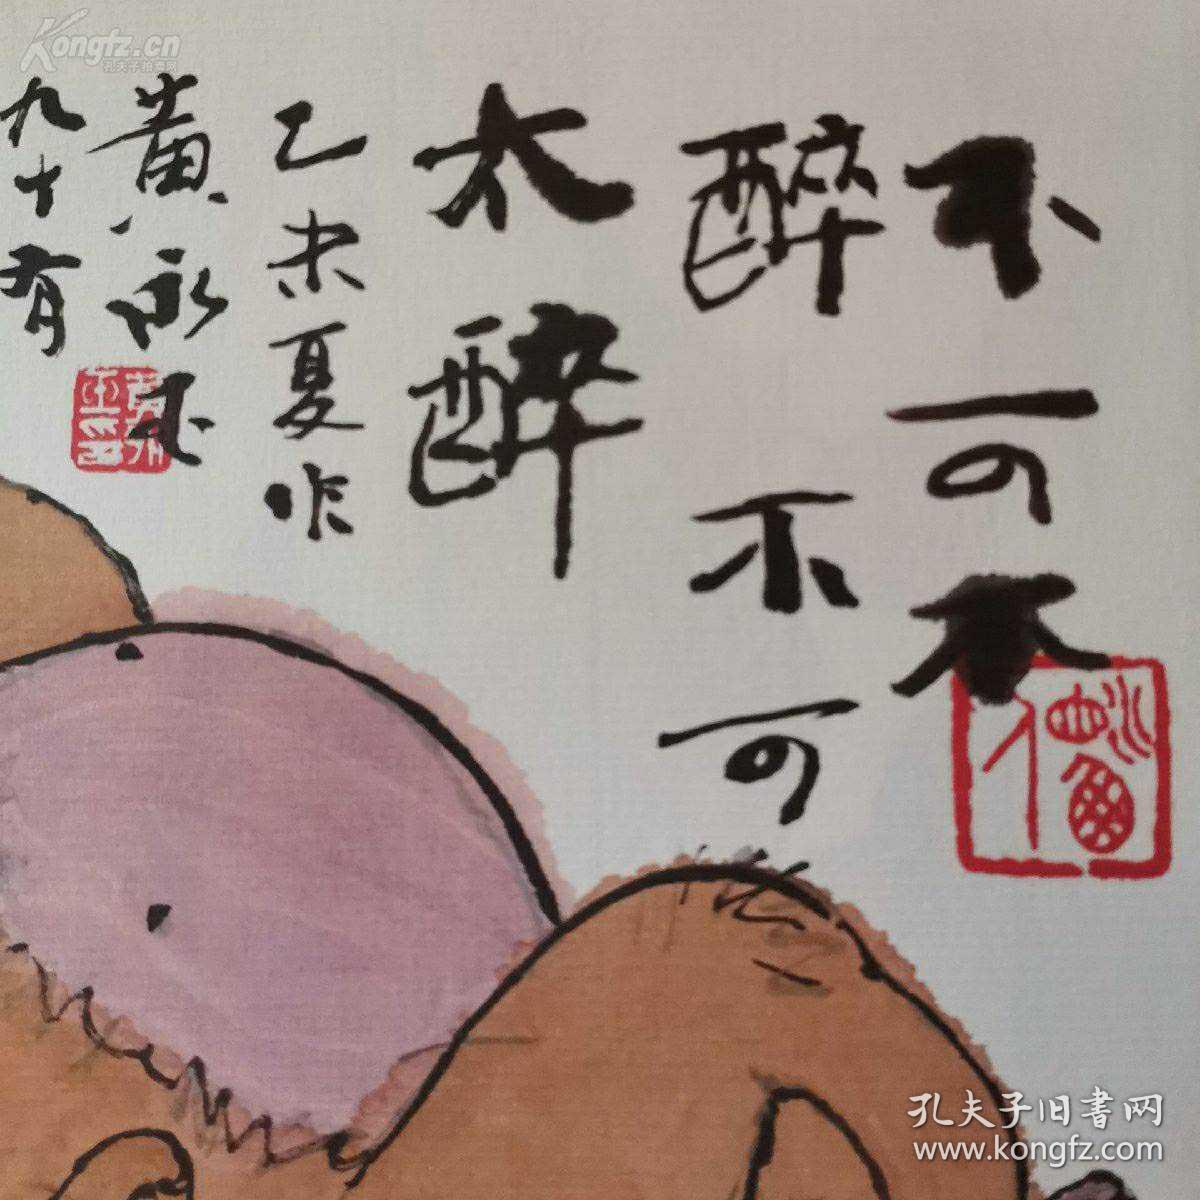 不可不
醉不可
太醉
乙未夏作
黄永玉
九十有
Kongfz.cn
孔夫子拍卖网
孔夫子旧書网
www.kongfz.com